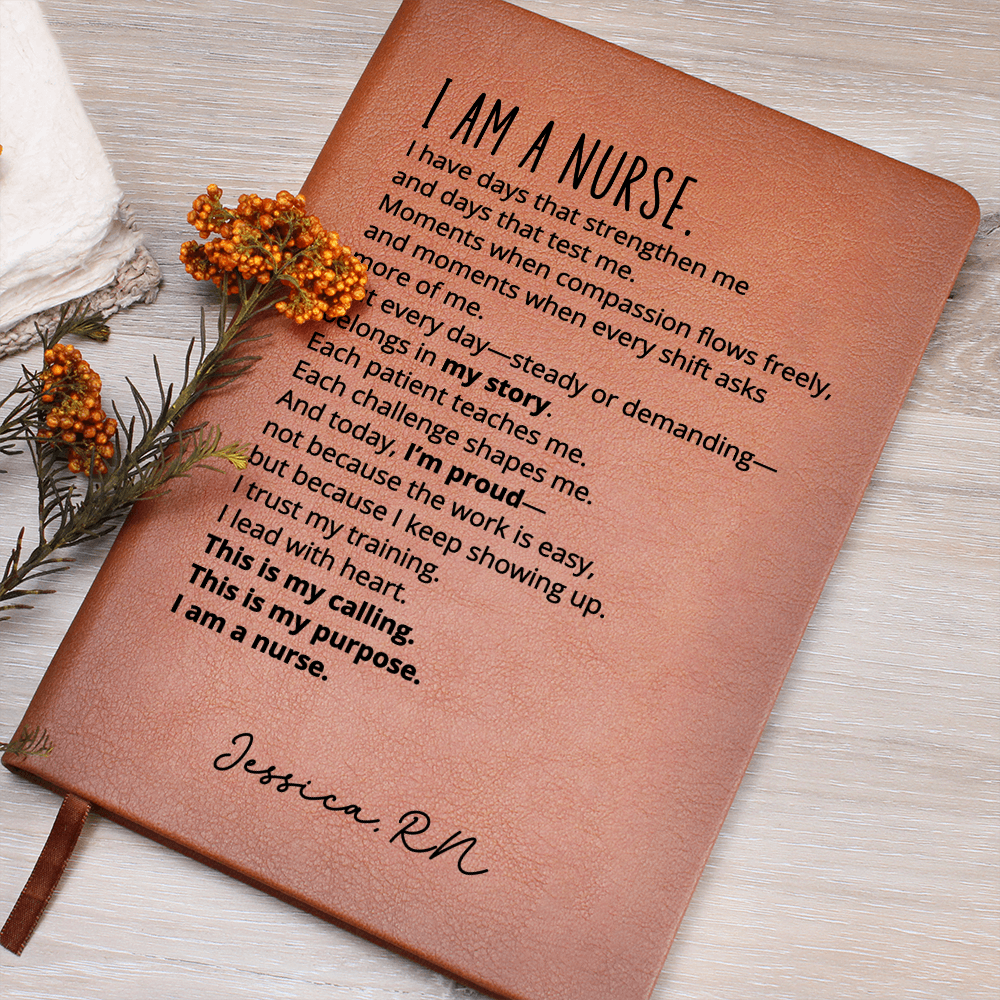 I AM A NURSE.
I have days that strengthen me
and days that test me.
Moments when compassion flows freely,
and moments when every shift asks
more of me.
every day—steady or demanding—
belongs in my story.
Each patient teaches me.
Each challenge shapes me.
And today, I'm proud—
not because the work is easy,
but because I keep showing up.
I trust my training.
I lead with heart.
This is my calling.
This is my purpose.
I am a nurse.
Jessica, RN